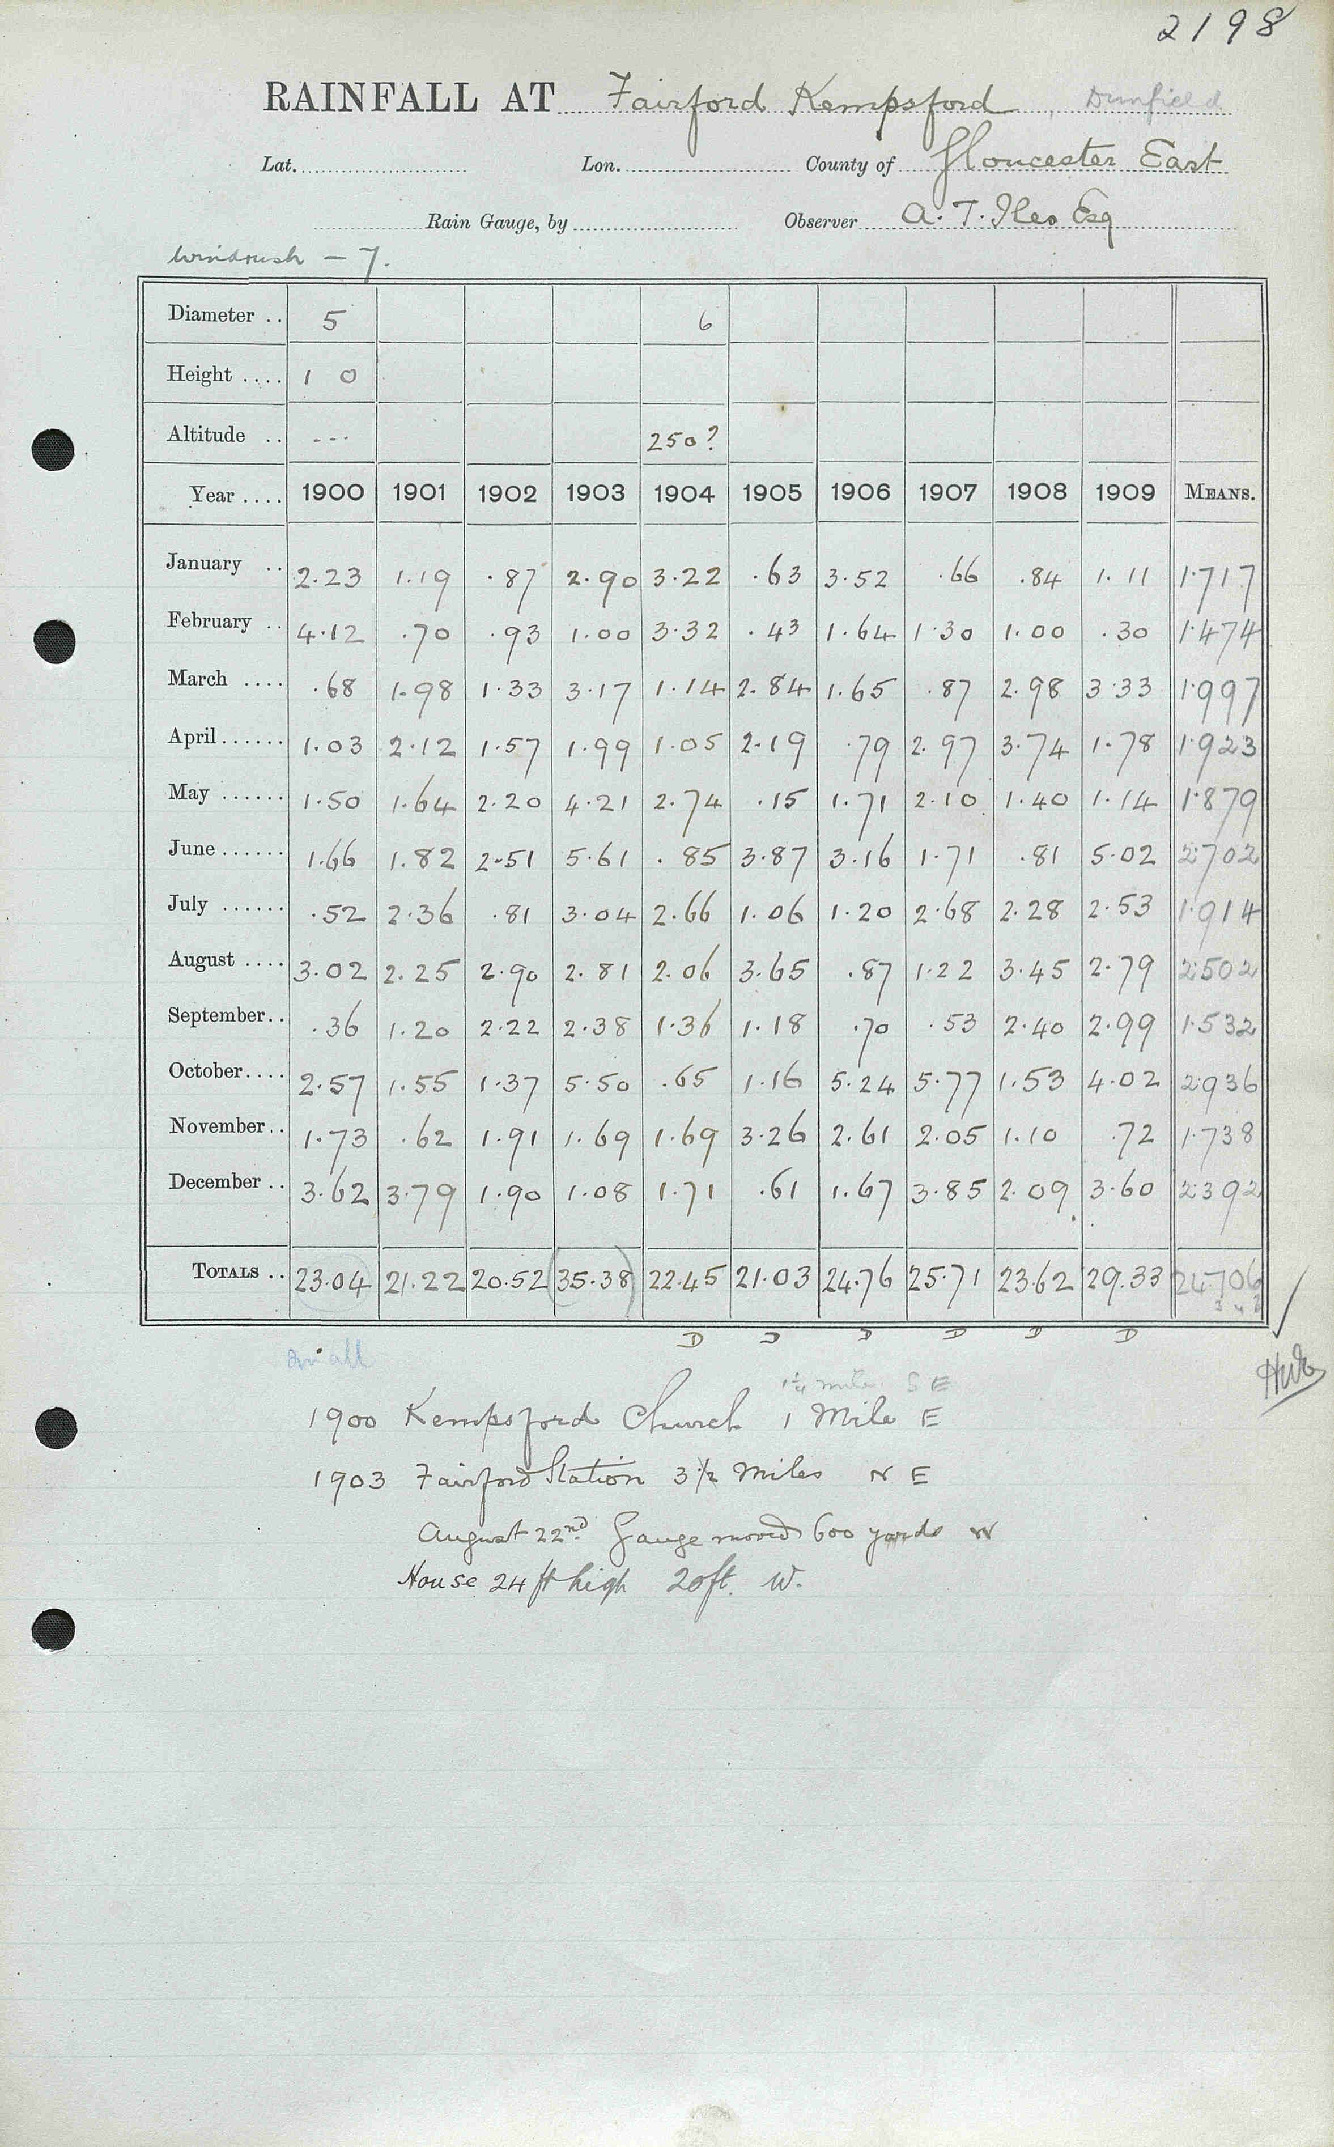 2198
RAINFALL AT Fairford Kempsford, Dunfield
Lat. Lon. County of Gloucester East
Rain Gauge, by Observer A. T. Iles Esq
Windrush — 7.
Diameter .. 5 6
Height .... 1 0
Altitude .. --- 250?
Year .... 1900 1901 1902 1903 1904 1905 1906 1907 1908 1909 MEANS.
January .. 2.23 1.19 .87 2.90 3.22 .63 3.52 .66 .84 1.11 1.717
February .. 4.12 .70 .93 1.00 3.32 .43 1.64 1.30 1.00 .30 1.474
March .... .68 1.98 1.33 3.17 1.14 2.84 1.65 .87 2.98 3.33 1.997
April ...... 1.03 2.12 1.57 1.99 1.05 2.19 .79 2.97 3.74 1.78 1.923
May ...... 1.50 1.64 2.20 4.21 2.74 .15 1.71 2.10 1.40 1.14 1.879
June ...... 1.66 1.82 2.51 5.61 .85 3.87 3.16 1.71 .81 5.02 2.702
July ...... .52 2.36 .81 3.04 2.66 1.06 1.20 2.68 2.28 2.53 1.914
August .... 3.02 2.25 2.90 2.81 2.06 3.65 .87 1.22 3.45 2.79 2.502
September.. .36 1.20 2.22 2.38 1.36 1.18 .70 .53 2.40 2.99 1.532
October.... 2.57 1.55 1.37 5.50 .65 1.16 5.24 5.77 1.53 4.02 2.936
November.. 1.73 .62 1.91 1.69 1.69 3.26 2.61 2.05 1.10 .72 1.738
December .. 3.62 3.79 1.90 1.08 1.71 .61 1.67 3.85 2.09 3.60 2.392
TOTALS .. 23.04 21.22 20.52 (35.38) 22.45 21.03 24.76 25.71 23.62 29.33 24.706
D D D D D D
1¼ mile S E
1900 Kempsford Church 1 Mile E
1903 Fairford Station 3½ Miles N E
August 22nd Gauge moved 600 yards W
House 24 ft high 20ft. W.